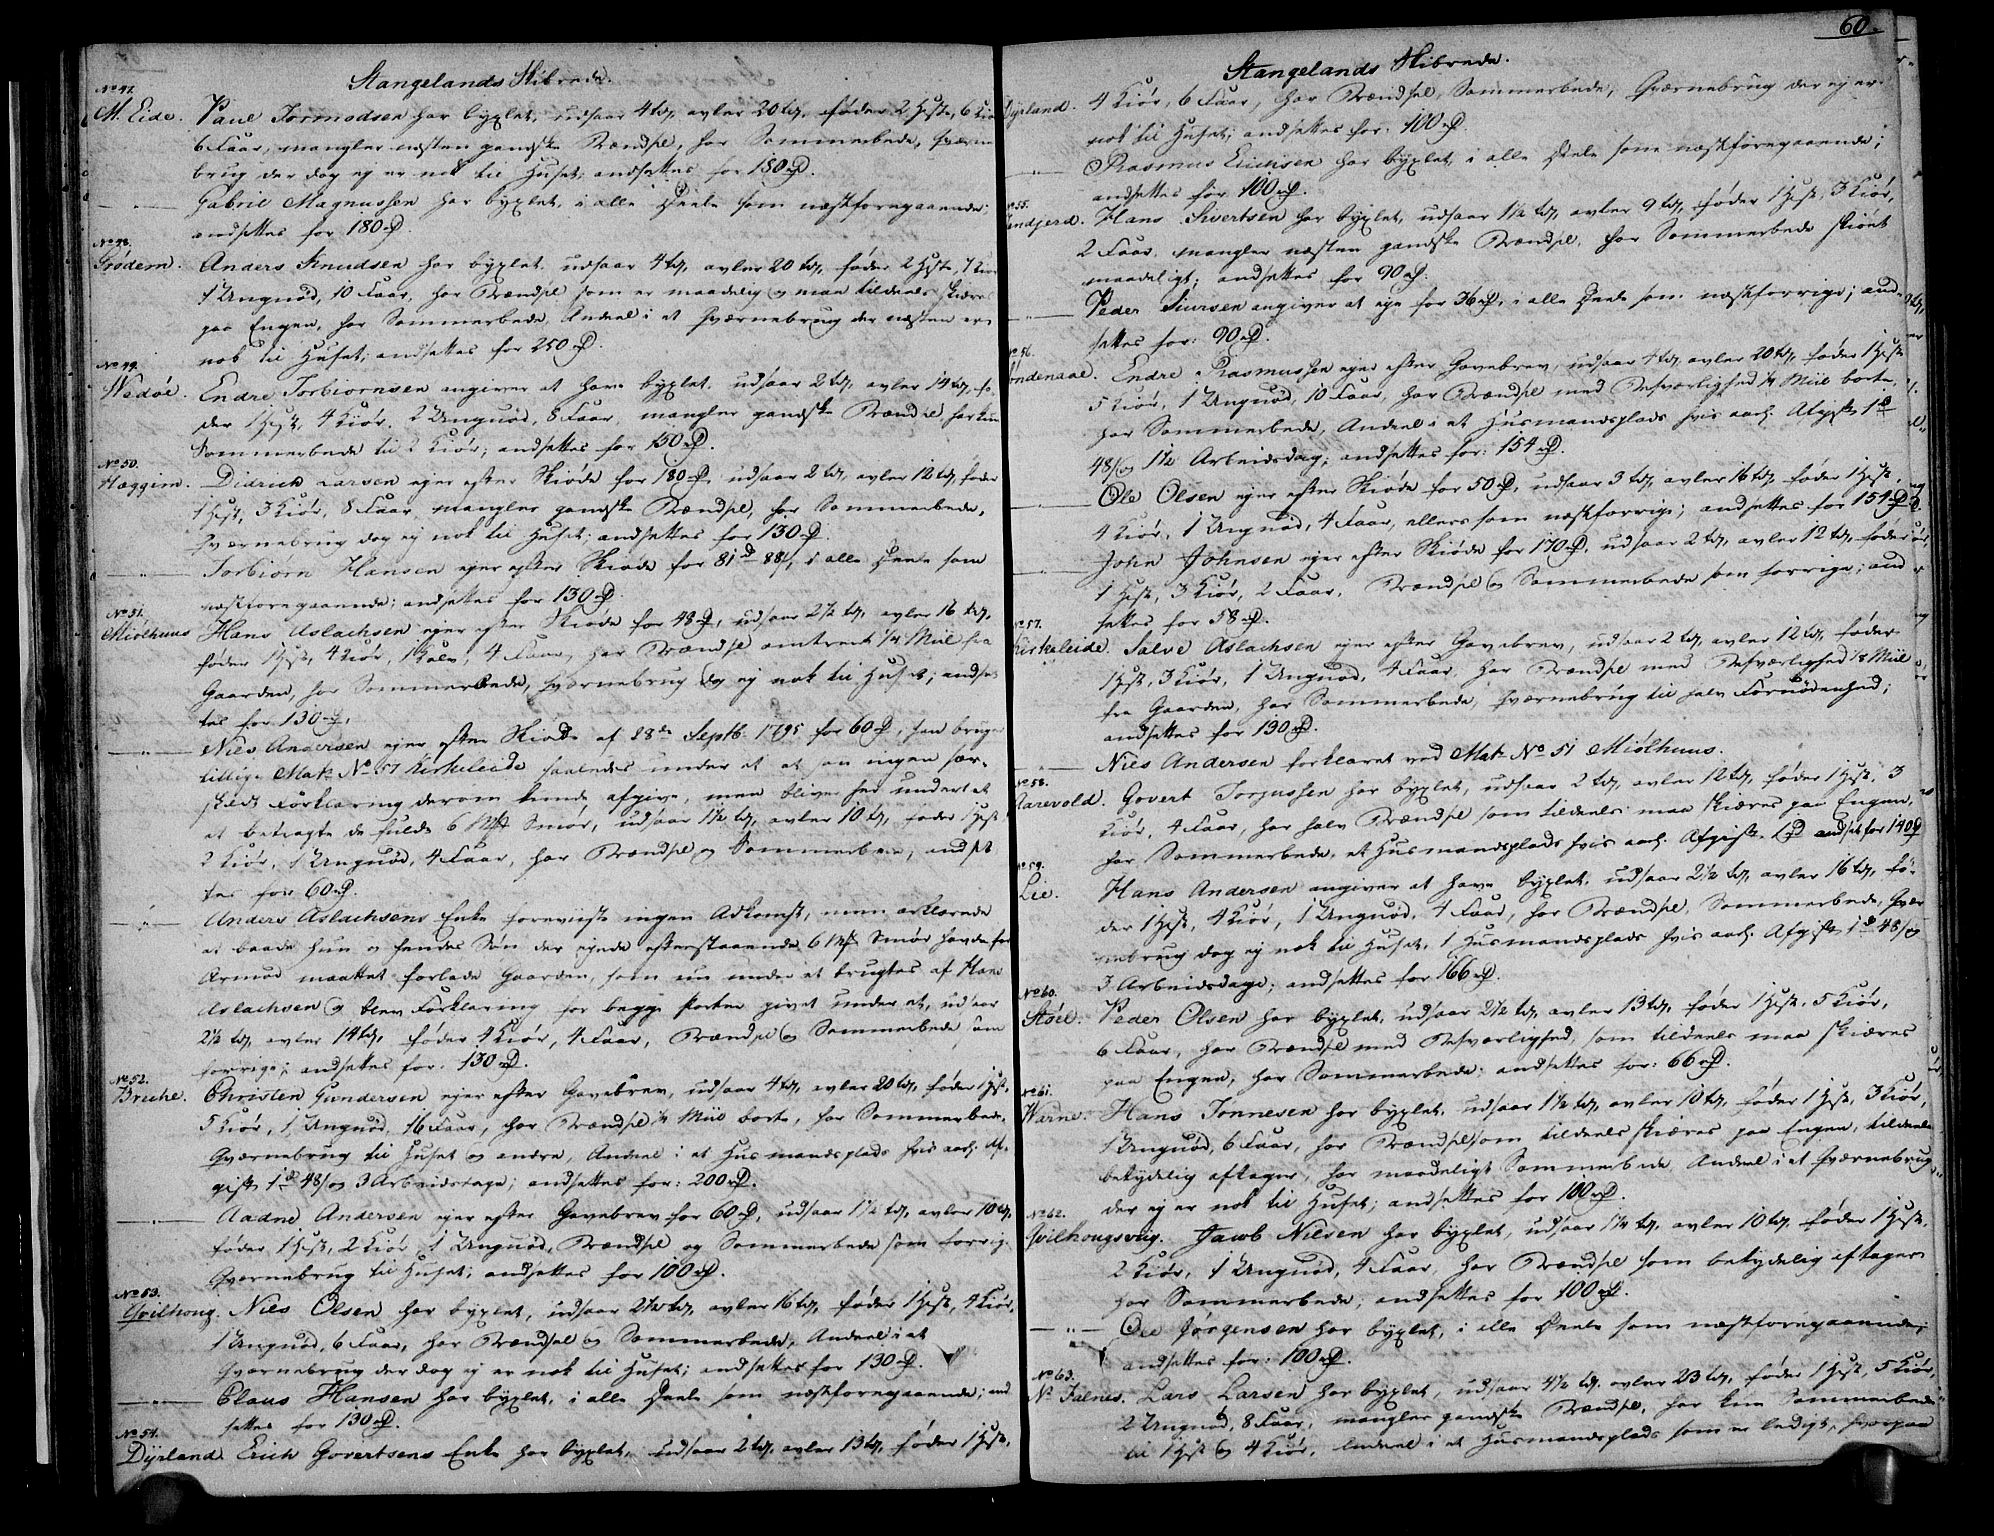 Stangelands Skibrede.
No 47.
M. Eide. Paul Tormodsen har byxlet, udsaar 4 td, avler 20 td, føder 2 Hest, 6 Kiør
6 Faar, mangler næsten gandske Brændsel, har Sommerbede, Qværne
brug der dog ej er nok til Huset; ansettes for 180 rD.
—"— Gabriel Magnussen har byxlet, i alle Deele som næstforegaaende;
ansettes for 180 rD.
No 48.
Grødem. Anders Knudsen har byxlet, udsaar 4 td, avler 20 td, føder 2 Hest, 7 Kiør
1 Ungnød, 10 Faar, har Brændsel som er maadelig og maa tildeels skiæres
paa Engen, har Sommerbede, Andeel i et Qværnebrug der næsten er
nok til Huset; ansettes for 250 rD.
No 49.
Wedøe. Endre Torbiornsen angiver at have byxlet, udsaar 2 td, avler 14 td, fø-
der 1 Hest, 4 Kiør, 2 Ungnød, 8 Faar, mangler gandske Brændsel har kun
Sommerbede til 2 Kiør; ansettes for 150 rD.
No 50.
Hæggim. Didrich Larsen ejer efter Skiøde for 180 rD, udsaar 2 td, avler 12 td, føder
1 Hest, 3 Kiør, 8 Faar, mangler gandske Brændsel, har Sommerbede,
Qværnebrug dog ej nok til Huset; ansettes for 130 rD.
—"— Torbiorn Hansen ejer efter Skiøde for 81 rD 88 s, i alle Deele som
næstforegaaende; ansettes for 130 rD.
No 51.
Miølhuus Hans Aslachsen ejer efter Skiøde for 48 rD, udsaar 2½ td, avler 16 td,
føder 1 Hest, 4 Kiør, 1 Kalv, 4 Faar, har Brændsel omtrent 1/4 Miil fra
Gaarden, har Sommerbede, Qværnebrug dog ej nok til Huset; andset-
tes for 130 rD.
—"— Niels Andersen ejer efter Skiøde af 28de Septb. 1795 for 60 rD, han bruger
tillige Mat: No 57 Kirkeleide saaledes under et at han ingen sær-
skildt Forklaring derom kunde afgive, men bliver her under et
at betragte de fulde 6 Smør, udsaar 1½ td, avler 10 td, føder 1 Hest
2 Kiør, 1 Ungnød, 4 Faar, har Brændsel og Sommerbede; andset
tes for 60 rD.
—"— Anders Aslachsens Enke foreviiste ingen Adkomst, men erklærede
at baade hun og hendes Søn der ejede efterstaaende 6 Smør havde for
Armod maattet forlade Gaarden, som nu under et brugtes af Hans
Aslachsen og blev Forklaring for begge Parter givet under et, udsaar
2½ td, avler 14 td, føder 4 Kiør, 4 Faar, Brændsel og Sommerbede som
forrige; ansettes for 130 rD.
No 52.
Breche. Christen Gundersen ejer efter Gavebrev, udsaar 4 td, avler 20 td, føder 1 Hest,
5 Kiør, 1 Ungnød, 16 Faar, har Brændsel ¼ Miil borte, har Sommerbede,
Qværnebrug til Huset og andre, Andeel i et Husmandsplads hvis aarl. Af-
gift 1 rD 48 s og 3 Arbeidsdage; ansettes for: 200 rD.
—"— Aadne Andersen ejer efter Gavebrev for 60 rD, udsaar 1½ td, avler 10 td,
føder 1 Hest, 2 Kiør, 1 Ungnød, Brændsel og Sommerbede som forrige
Qværnebrug til Huset; ansettes for 100 rD.
No 53.
Qvilhoug. Niels Olsen har byxlet, udsaar 2½ td, avler 16 td, føder 1 Hest, 4 Kiør,
1 Ungnød, 6 Faar, har Brændsel og Sommerbede, Andeel i et
Qværnebrug der dog ej er nok til Huset; ansettes for 130 rD.
—"— Claus Hansen har byxlet, i alle Deele som næstforegaaende; and
settes for 130 rD.
No 54.
Dyrland Erich Govertsens Enke har byxlet, udsaar 2 td, avler 13 td, føder 1 Hest,
60.
Stangelands Skibrede.
Dyrland. 4 Kiør, 6 Faar, har Brændsel, Sommerbede, Qværnebrug der ej er
nok til Huset; andsettes for: 100 rD.
—"— Rasmus Ericksen har byxlet, i alle Deele som næstforegaaende;
andsettes for 100 rD.
No 55.
Hans Sivertsen har byxlet, udsaar 1½ td, avler 9 td, føder 1 Hest, 3 Kiør,
2 Faar, mangler næsten gandske Brændsel, har Sommerbede skiønt
maadeligt; andsettes for 90 rD.
—"— Peder Siursen angiver at eje for 36 rD, i alle Deele som næstforrige; and-
settes for: 90 rD.
No 56.
Endre Rasmussen ejer efter Gavebrev, udsaar 4 td, avler 20 td, føder 1 Hest
5 Kiør, 1 Ungnød, 10 Faar, har Brændsel med Besværlighed 1/4 Miil borte,
har Sommerbede, Andeel i et Husmandsplads hvis aarl. Afgift 1 rD
48 s og 1½ Arbeidsdag; andsettes for: 154 rD.
—"— Ole Olsen ejer efter Skiøde for 50 rD, udsaar 3 td, avler 16 td, føder 1 Hest,
4 Kiør, 1 Ungnød, 4 Faar, ellers som næstforrige; andsettes for 154 rD.
—"— John Johnsen ejer efter Skiøde for 170 rD, udsaar 2 td, avler 12 td, føder
1 Hest, 3 Kiør, 2 Faar, Brændsel og Sommerbede som forrige; and
settes for 58 rD.
No 57.
Kirkeleide. Salve Aslachsen ejer efter Gavebrev, udsaar 2 td, avler 12 td, føder
1 Hest, 3 Kiør, 1 Ungnød, 4 Faar, har Brændsel med Besværlighed 1/8 Miil
fra Gaarden, har Sommerbede, Qværnebrug til halv Fornødenhed;
andsettes for 130 rD.
—"— Niels Andersen forklaret ved Mat: No 51 Miølhuus.
No 58.
Govert Torjussen har byxlet, udsaar 2 td, avler 12 td, føder 1 Hest, 3
Kiør, 4 Faar, har halv Brændsel som tildeels maa skiæres paa Engen,
har Sommerbede, et Husmandsplads hvis aarl. Afgift rD andset for 140 rD
No 59.
Lie. Hans Andersen angiver at have byxlet, udsaar 2½ td, avler 16 td, fø-
der 1 Hest, 4 Kiør, 1 Ungnød, 4 Faar, har Brændsel, Sommerbede, Qvær
nebrug dog ej nok til Huset, 1 Husmandsplads hvis aarl. Afgift 1 rD 48 s og
3 Arbeidsdage; andsettes for 166 rD.
No 60.
Støle. Peder Olsen har byxlet, udsaar 2½ td, avler 13 td, føder 1 Hest, 5 Kiør,
6 Faar, har Brændsel med Besværlighed, som tildeels maa skiæres
paa Engen, har Sommerbede; andsettes for: 66 rD.
No 61.
Warne. Hans Tonnesen har byxlet, udsaar 1½ td, avler 10 td, føder 1 Hest, 3 Kiør,
1 Ungnød, 6 Faar, har Brændsel som tildeels skiæres paa Engen, tildeels
betydelig aftager, har maadeligt Sommerbede, Andeel i et Qværnebrug
der ej er nok til Huset; andsettes for 100 rD.
No 62.
Qvilhougsvug. Jacob Nilsen har byxlet, udsaar 1¼ td, avler 10 td, føder 1 Hest,
2 Kiør, 1 Ungnød, 4 Faar, har Brændsel som betydelig aftager
har Sommerbede; andsettes for 100 rD.
—"— Ole Jørgensen har byxlet, i alle Deele som næstforegaaende;
andsettes for: 100 rD.
No 63.
N. Falnes. Lars Larsen har byxlet, udsaar 4½ td, avler 23 td, føder 1 Hest, 5 Kiør,
2 Ungnød, 8 Faar, mangler gandske Brændsel, har kun Sommerbede
til 1 Hest og 4 Kiør, Andeel i et Husmandsplads som er ledigt, hvorpaa